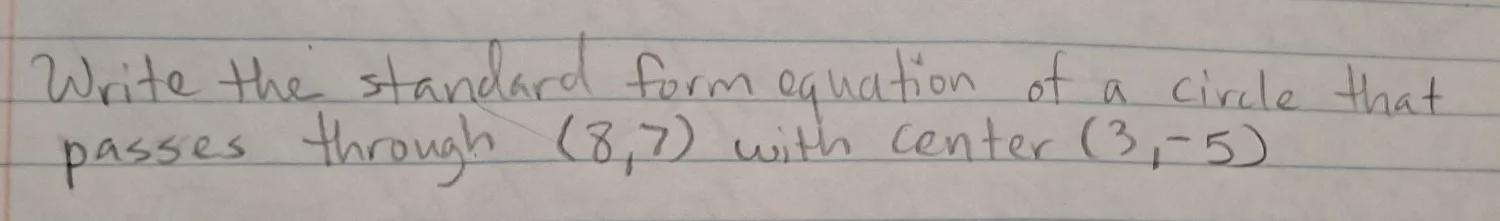 Write the standard form equation of a circle that
passes through (8,7) with center (3,-5)